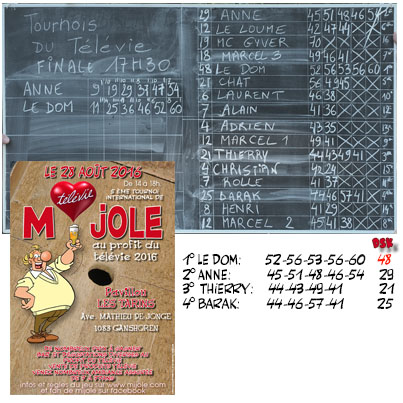 Tournois
DU Télévie
FINALE 17H30
ANNE 9 19 29 37 47 54
LE DOM 11 25 36 46 52 60
29 ANNE 45 51 48 46 54
12 LE LOUME 42 47 44
19 MC GYVER 70
18 MARCEL 3 49 46 41
48 LE DOM 52 56 53 56 60
21 CHAT 56 41 95
6 LAURENT 46 38
7 ALAIN 41 36
4 ADRIEN 43 35
12 MARCEL 1 49 41
21 THIERRY 44 43 49 41
4 CHRISTIAN 42 24
7 ROLLE 41 37
25 BARAK 44 46 57 41
8 HENRI 41 29
12 MARCEL 2 45 41 38
LE 28 AOÛT 2016
De 14 à 18h
5 ÈME TOURNOI
INTERNATIONAL DE
télévie
MJOLE
au profit du
télévie 2016
Pavillon
LES DARINS
Ave: MATHIEU DE JONGE
1083 GANSHOREN
infos et règles du jeu sur www.mijole.com
et fan de mijole sur facebook
DSK
1° LE DOM: 52-56-53-56-60 48
2° ANNE: 45-51-48-46-54 29
3° THIERRY: 44-43-49-41 21
4° BARAK: 44-46-57-41 25